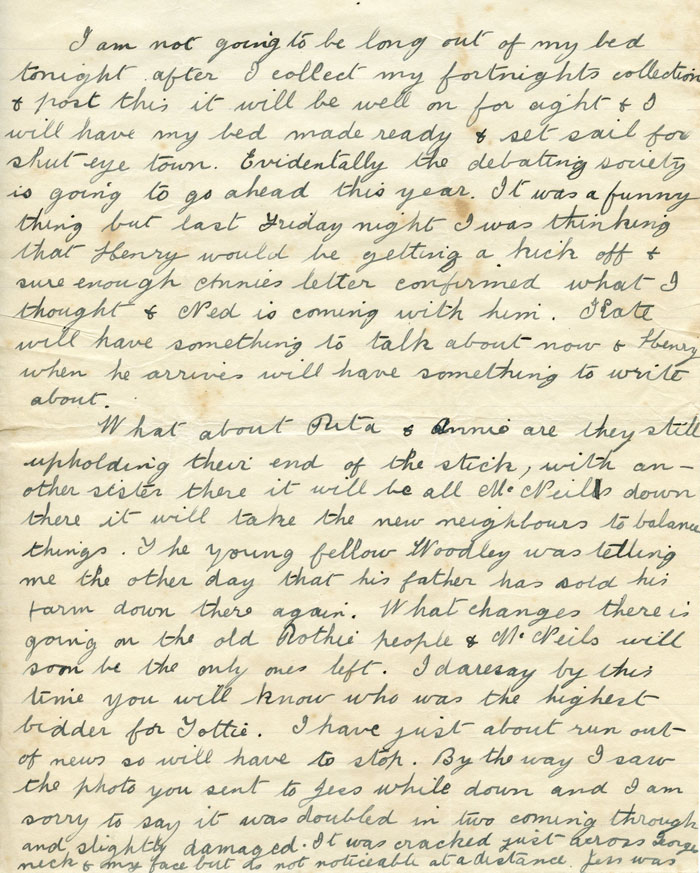 I am not going to be long out of my bed
tonight after I collect my fortnights collection
& post this it will be well on for eight & I
will have my bed made ready & set sail for
shut eye town. Evidentally the debating society
is going to go ahead this year. It was a funny
thing but last Friday night I was thinking
that Henry would be getting a kick off &
sure enough Annies letter confirmed what I
thought & Ned is coming with him. Kate
will have something to talk about now & Henry
when he arrives will have something to write
about.
What about Rita & Annie are they still
upholding their end of the stick, with an-
other sister there it will be all McNeills down
there it will take the new neighbours to balance
things. The young fellow Woodley was telling
me the other day that his father has sold his
farm down there again. What changes there is
going on the old Rothie people & McNeils will
soon be the only ones left. I daresay by this
time you will know who was the highest
bidder for Tottie. I have just about run out
of news so will have to stop. By the way I saw
the photo you sent to Jess while down and I am
sorry to say it was doubled in two coming through
and slightly damaged. It was cracked just across Georges
neck & my face but is not noticeable at a distance. Jess was